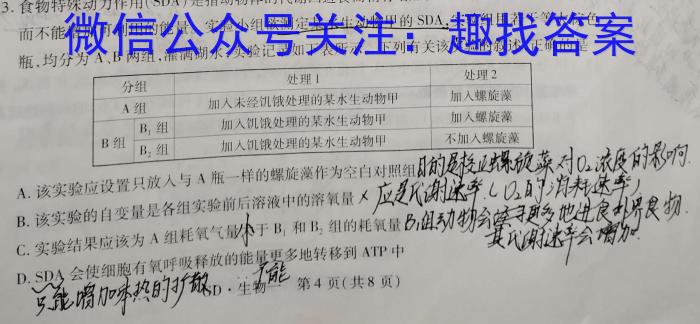 3. 食物特殊动力作用(SDA)是指动物
而不能
微信公众号关注：趣找答案
瓶，均分为A、B两组，灌满湖水，实验记录如下表所示。下列有关该实验的叙述，正确的是
分组 处理1 处理2
A组 加入未经饥饿处理的某水生动物甲 加入螺旋藻
B组 B₁组 加入饥饿处理的某水生动物甲 加入螺旋藻
B₂组 加入饥饿处理的某水生动物甲 不加入螺旋藻
A. 该实验应设置只放入与A瓶一样的螺旋藻作为空白对照组 目的是校正螺旋藻对O₂浓度的影响.
B. 该实验的自变量是各组实验前后溶液中的溶氧量 × 应是代谢速率(O₂的消耗速率)
C. 实验结果应该为A组耗氧气量小于B₁和B₂组的耗氧量 B₁组动物会 多地进食外界食物.
其代谢速率会增加
D. SDA会使细胞有氧呼吸释放的能量更多地转移到ATP中 不能
只能增加体热的扩散
SD·生物 第4页(共8页)